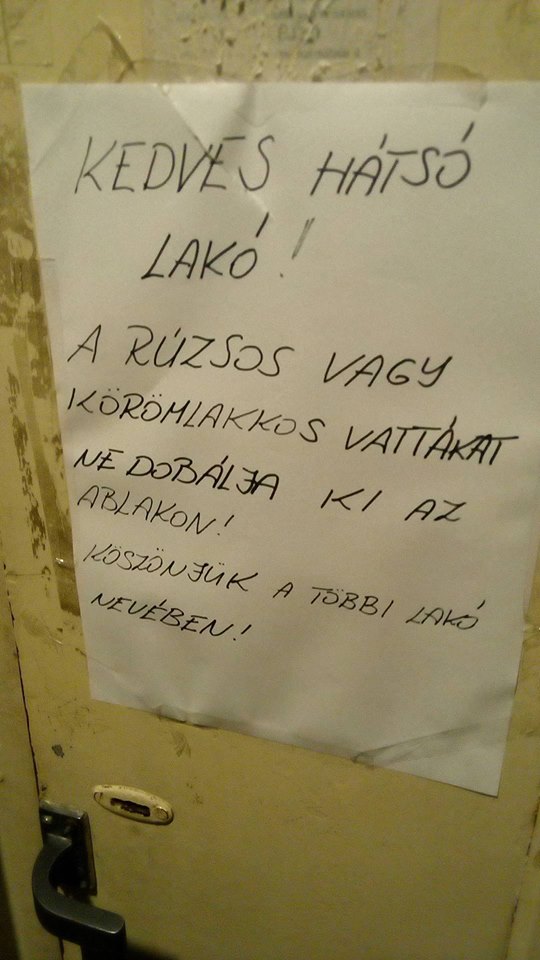 KEDVES HÁTSÓ
LAKÓ!
A RÚZSOS VAGY
KÖRÖMLAKKOS VATTÁKAT
NE DOBÁLJA KI AZ
ABLAKON!
KÖSZÖNJÜK A TÖBBI LAKÓ
NEVÉBEN!